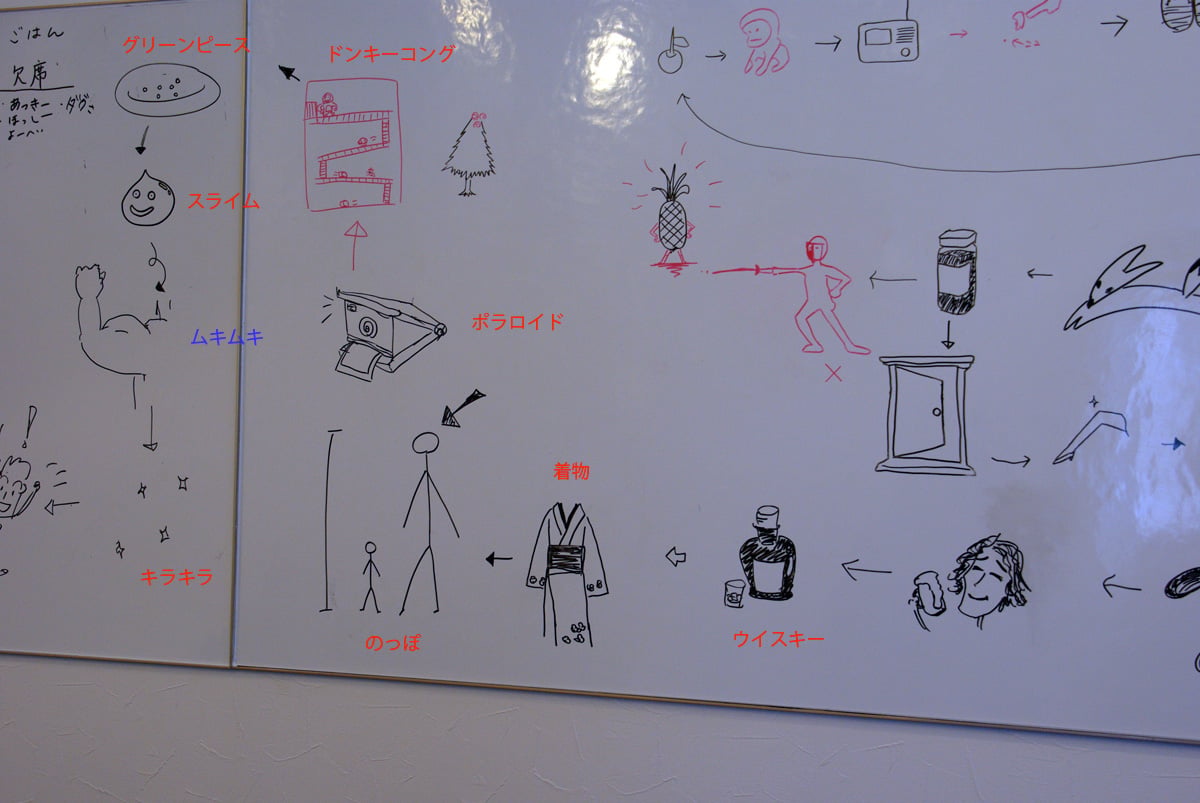 ごはん
欠席
・あっきー
・はっしー
よーへー
グリーンピース
スライム
ムキムキ
キラキラ
ドンキーコング
ポラロイド
のっぽ
着物
ウイスキー